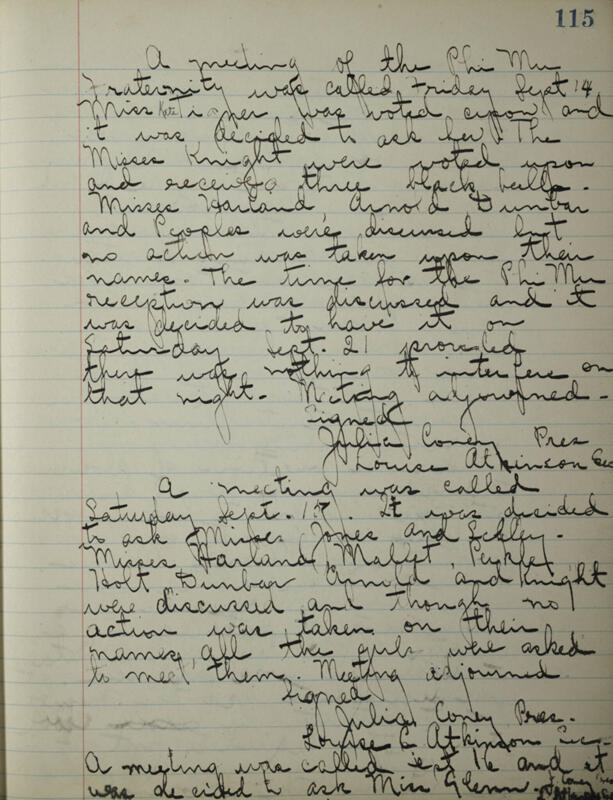 115
A meeting of the Phi Mu
Fraternity was called Friday Sept 14
Miss was voted upon and
it was decided to ask her. The
Misses Knight were voted upon
and received three black balls.
Misses Harland Arnold Dunbar
and Peoples were discussed but
no action was taken upon their
names. The time for the Phi Mu
reception was discussed and it
was decided to have it on
Saturday Sept. 21 provided
there was nothing to interfere on
that night. Meeting adjourned.
Signed
Julia Coney Pres
Louise Atkinson Sec
A meeting was called
Saturday Sept. It was decided
to ask Misses Jones and
Misses Harland, Mallet,
Holt, Dunbar Arnold and Knight
were discussed and though no
action was taken on their
names, all the girls were asked
to meet them. Meeting adjourned
Signed
Julia Coney Pres.
Louise C Atkinson Sec.
A meeting was called Sept 16 and it
was decided to ask Miss Glenn.